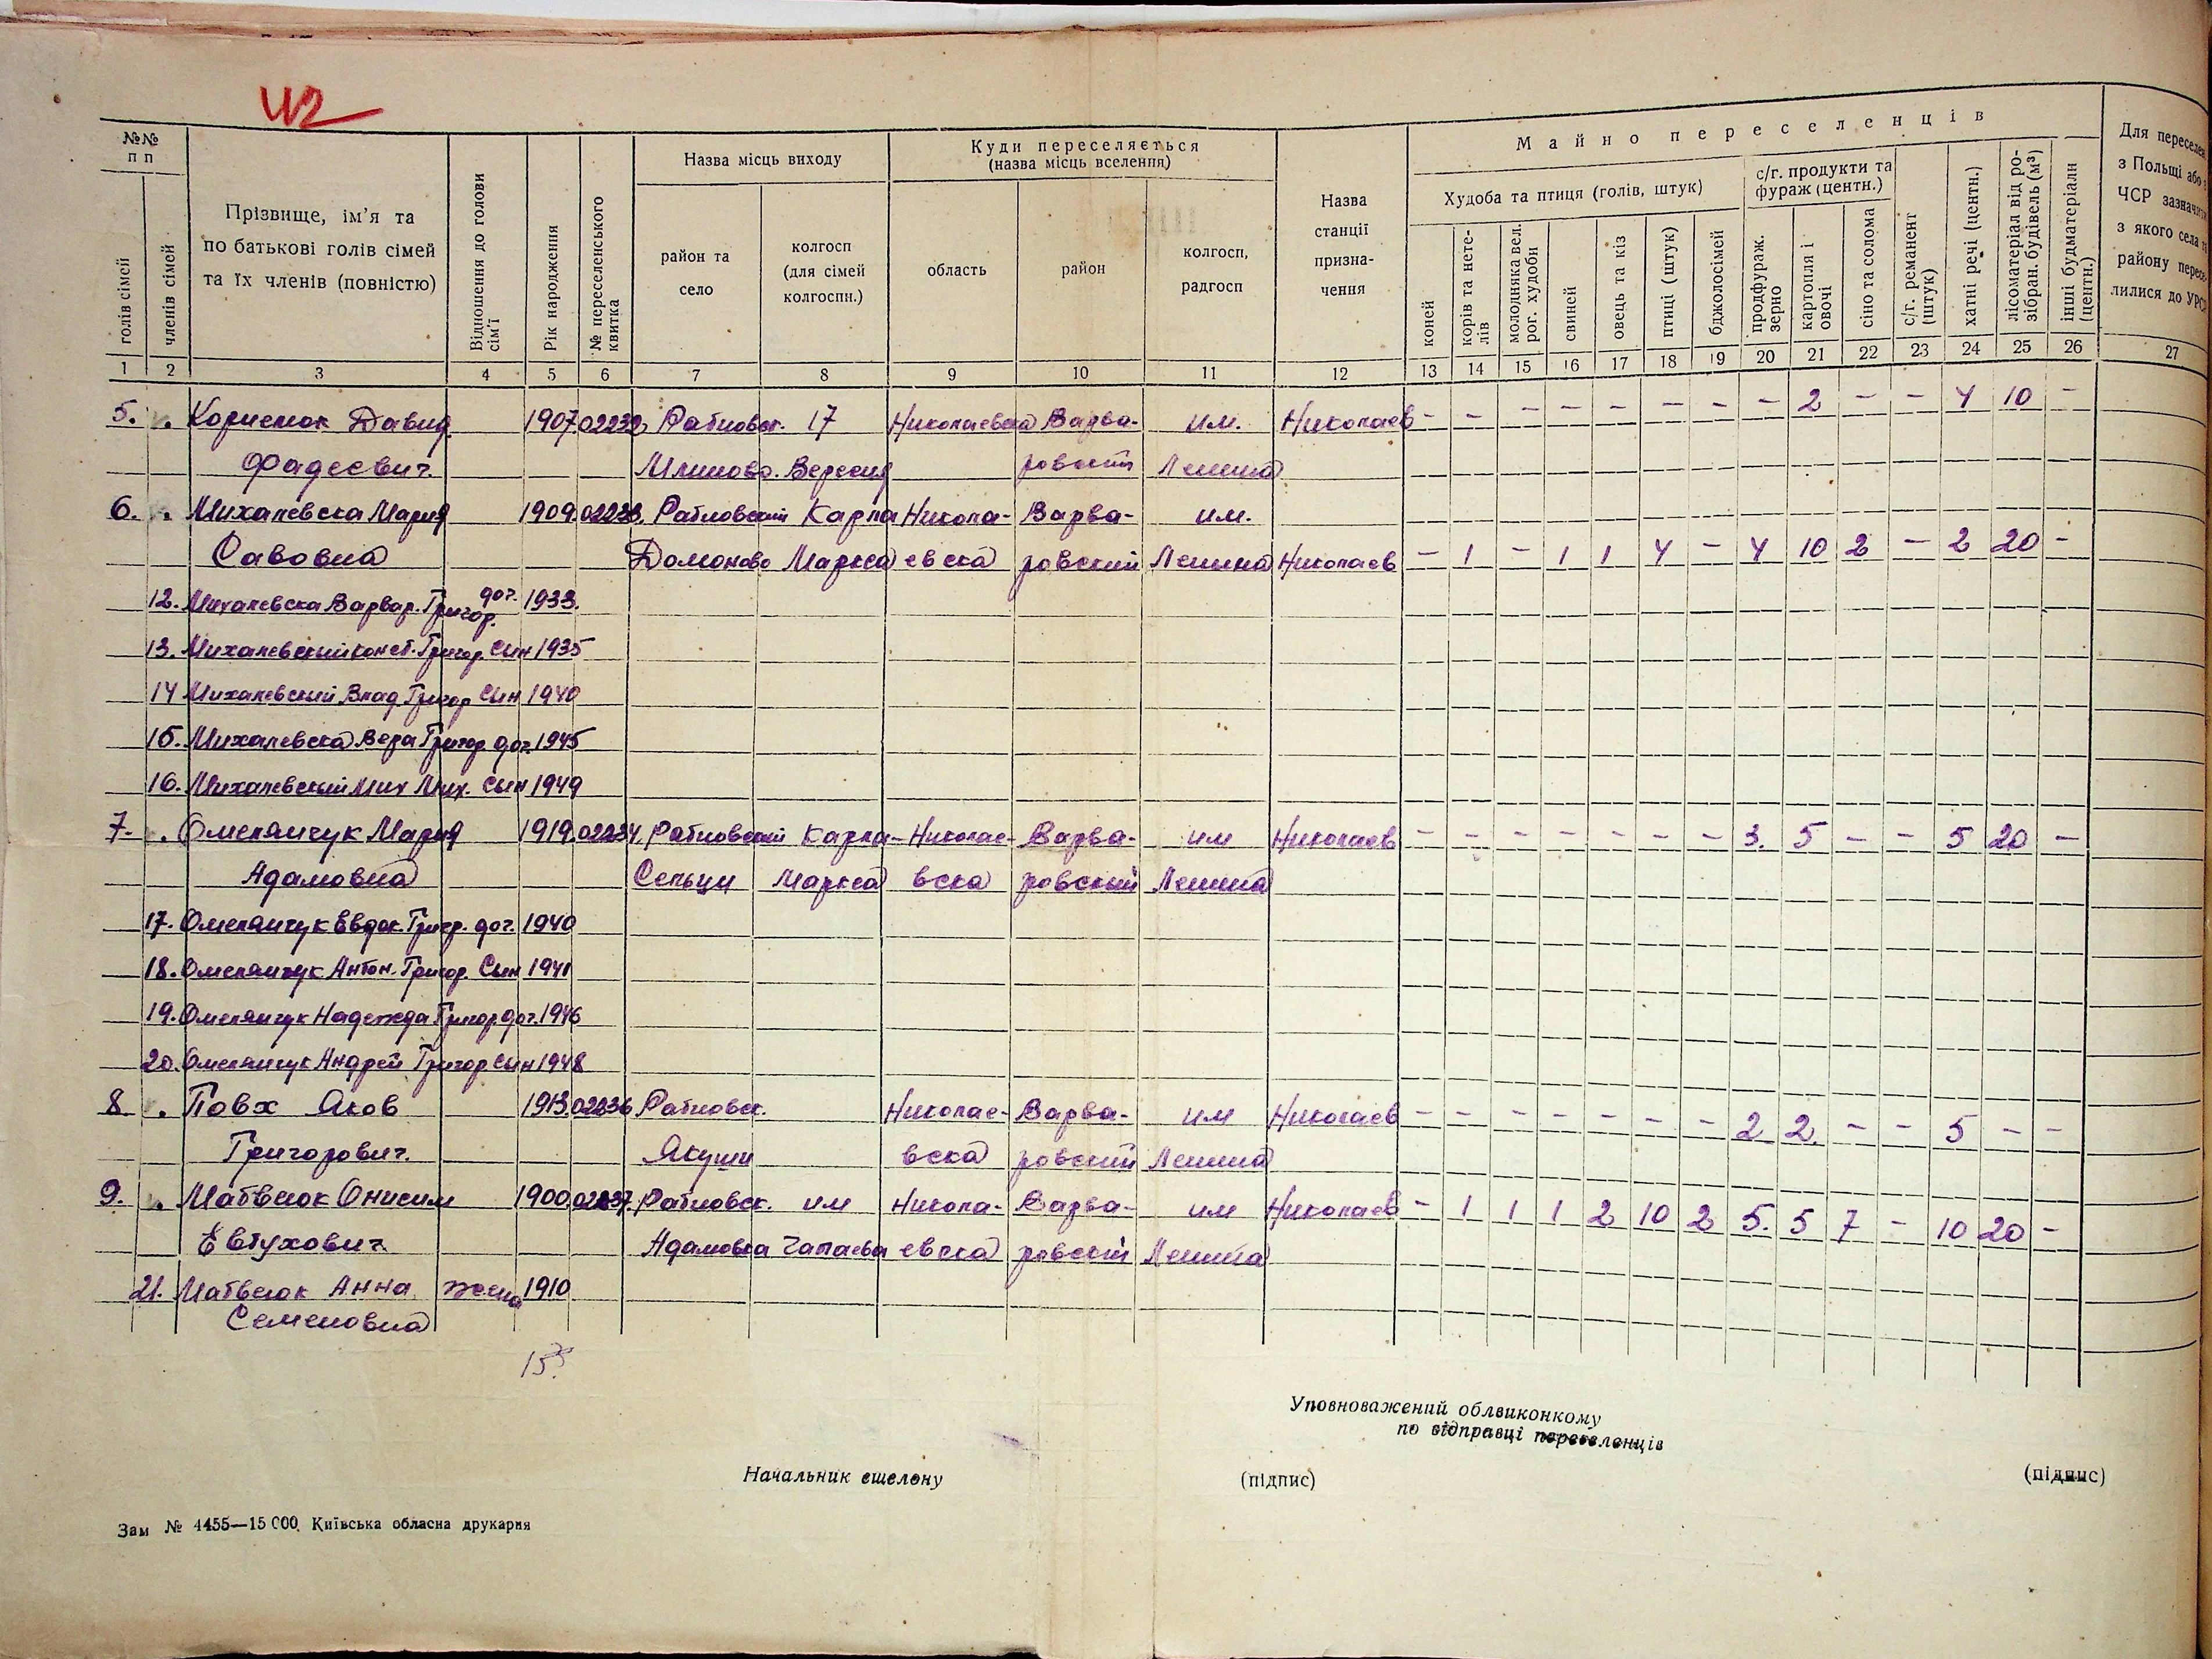 42
№№ п п
Прізвище, ім'я та по батькові голів сімей та їх членів (повністю)
Відношення до голови сім'ї
Рік народження
№ переселенського квитка
Назва місць виходу
Куди переселяється (назва місць вселення)
Назва станції призначення
Майно переселенців
Для переселен
з Польщі або з
ЧСР зазначити
з якого села та
району пересе-
лилися до УРСР
голів сімей
членів сімей
район та село
колгосп (для сімей колгоспн.)
область
район
колгосп, радгосп
Худоба та птиця (голів, штук)
с/г. продукти та фураж (центн.)
с/г. реманент (штук)
хатні речі (центн.)
лісоматеріал від розібран. будівель (м³)
інші будматеріали (центн.)
коней
корів та нетелів
молодняка вел. рог. худоби
свиней
овець та кіз
птиці (штук)
бджолосімей
продфураж. зерно
картопля і овочі
сіно та солома
1 2 3 4 5 6 7 8 9 10 11 12 13 14 15 16 17 18 19 20 21 22 23 24 25 26 27
5. Корнелюк Давид 1907. 02232 Ратновск. 17 Николаевска Варва- им. Николаев - - - - - - - - 2 - - 4 10 -
Фадеевич. Млиново. Вересня ровский Ленина
6. Михалевска Мария 1909. 02233. Ратновский Карла Никола- Варва- им.
Савовна Домоново Маркса евска ровский Ленина Николаев - 1 - 1 1 4 - 4 10 2 - 2 20 -
12. Михалевска Варвар. Григор. доч. 1933.
13. Михалевский Конст. Григор. Сын 1935
14 Михалевский Влад Григор Сын 1940
15. Михалевска Вера Григор. доч. 1945
16. Михалевский Мих Мих. Сын 1949
7. Омелянчук Мария 1919. 02234. Ратновский Карла- Николае- Варва- им Николаев - - - - - - - 3. 5 - - 5 20 -
Адамовна Сельци Маркса вска ровский Ленина
17. Омелянчук Евдок. Григр. доч. 1940
18. Омелянчук Антон. Григор. Сын 1941
19. Омелянчук Надежда Григор. доч. 1946
20. Омелянчук Андрей Григор Сын 1948
8 Повх Яков 1913. 02236 Ратновск. Николае- Варва- им Николаев - - - - - - - 2 2 - - 5 - -
Григорович. Якуши вска ровский Ленина
9. Матвеюк Онисим 1900. 02237. Ратновск. им Никола- Варва- им Николаев - 1 1 1 2 10 2 5. 5 7 - 10 20 -
Евтухович. Адамовка Чапаева евска ровский Ленина
21. Матвеюк Анна жена 1910
Семеновна
Уповноважений облвиконкому
по відправці переселенців
Начальник ешелону (підпис) (підпис)
Зам № 4455—15 000. Київська обласна друкарня